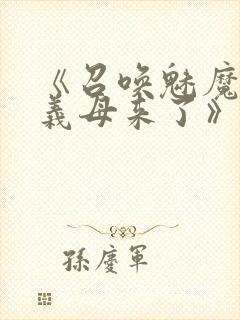 《召唤魅魔
義母来了》
孫慶軍